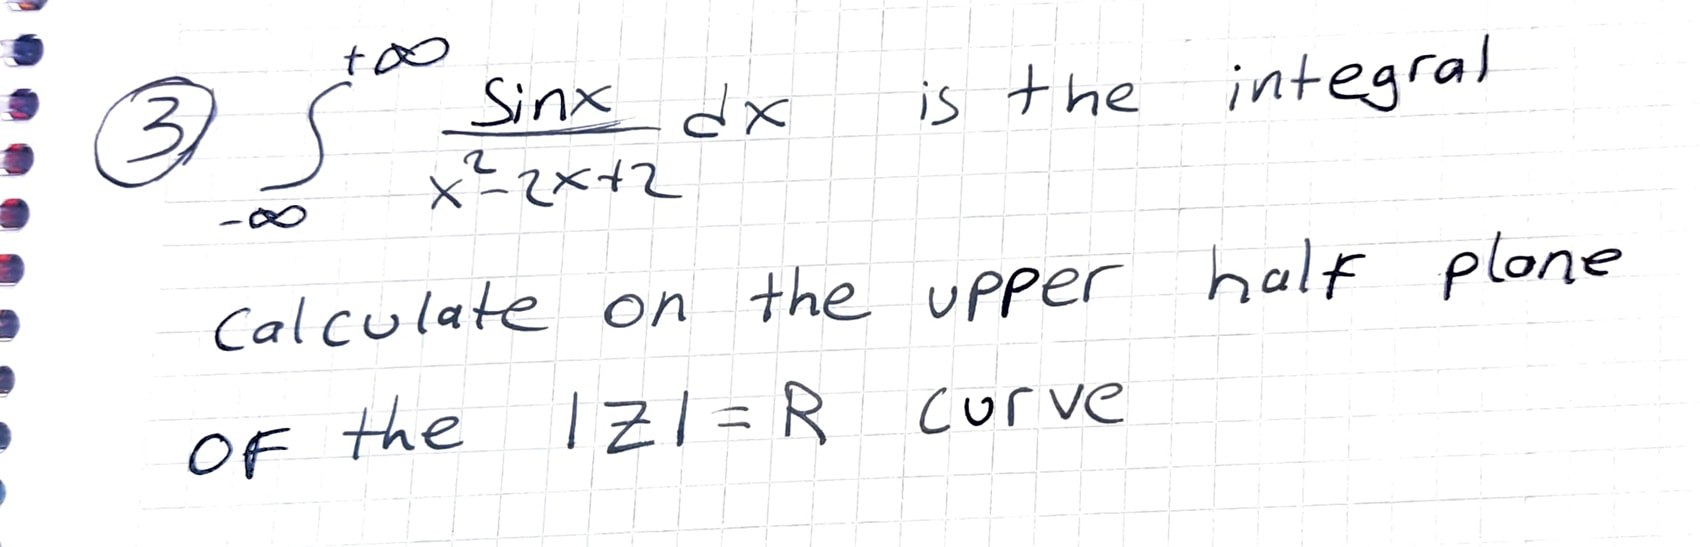 ③ ∫_{-∞}^{+∞} sinx / (x²-2x+2) dx is the integral
calculate on the upper half plane
of the |z| = R curve